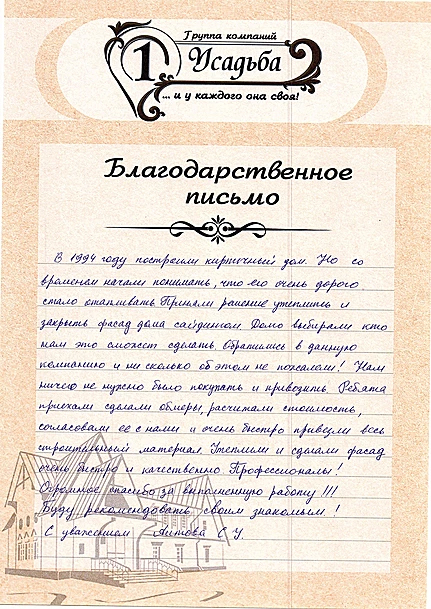 Группа компаний
1 Усадьба
... и у каждого она своя!
Благодарственное
письмо
В 1994 году построили кирпичный дом. Но со
временем начали понимать, что его очень дорого
стало отапливать. Приняли решение утеплить и
закрыть фасад дома сайдингом. Долго выбирали кто
нам это сможет сделать. Обратились в данную
компанию и ни сколько об этом не пожалели! Нам
ничего не нужно было покупать и привозить. Ребята
приехали сделали обмеры, расчитали стоимость,
согласовали ее с нами и очень быстро привезли весь
строительный материал. Утеплили и сделали фасад
очень быстро и качественно. Профессионалы!
Огромное спасибо за выполненную работу!!!
Буду рекомендовать своим знакомым!
С уважением Аитова С.У.